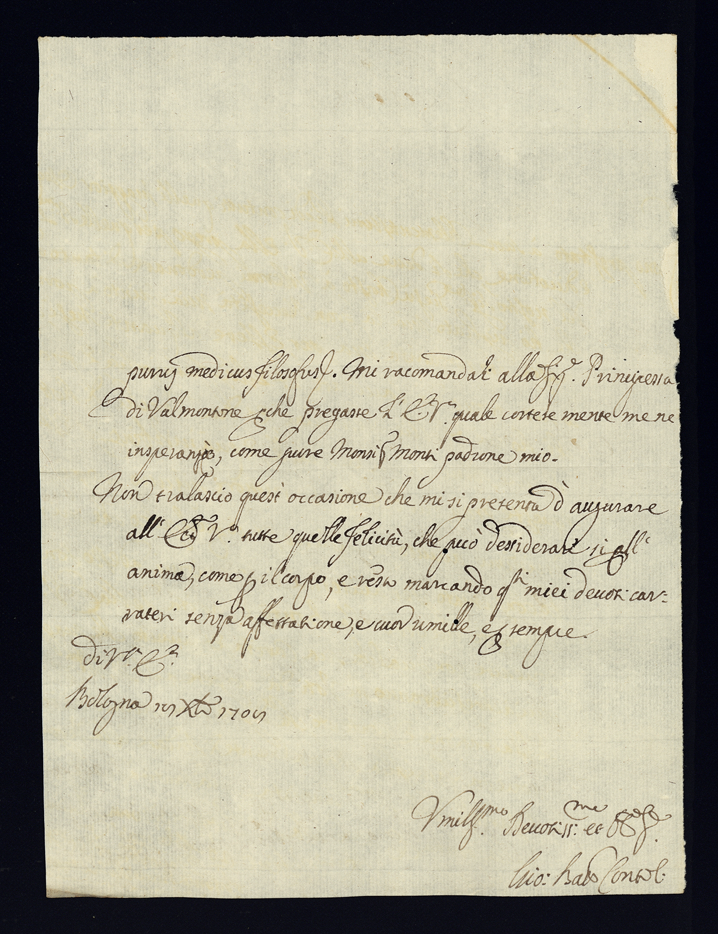 medicus filosofus. Mi racomandai alla Principessa
di Valmontone che pregasse quale cortesemente me ne
come pure Monsig. Monti padrone mio.
Non tralascio quest occasione che mi si presenta d augurare
all' tutte quelle felicità, che può dessiderare si all'
anima, come il corpo, e resto marcando miei devoti car:
rateri senza affettatione, e cuor umille, e sempre
di V.
Bologna
Umilss.mo Devotiss.mo et
Gio: Batt